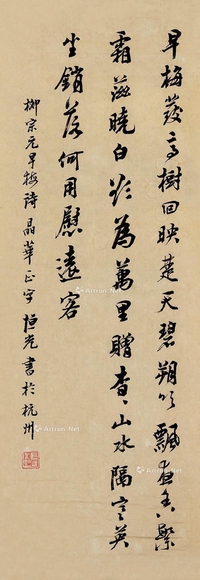 早梅發高樹回映楚天碧朔吹飄夜香繁
霜滋曉白欲為萬里贈杳々山水隔寒英
坐銷落何用慰遠客
柳宗元早梅詩晶華正字恒光書於杭州